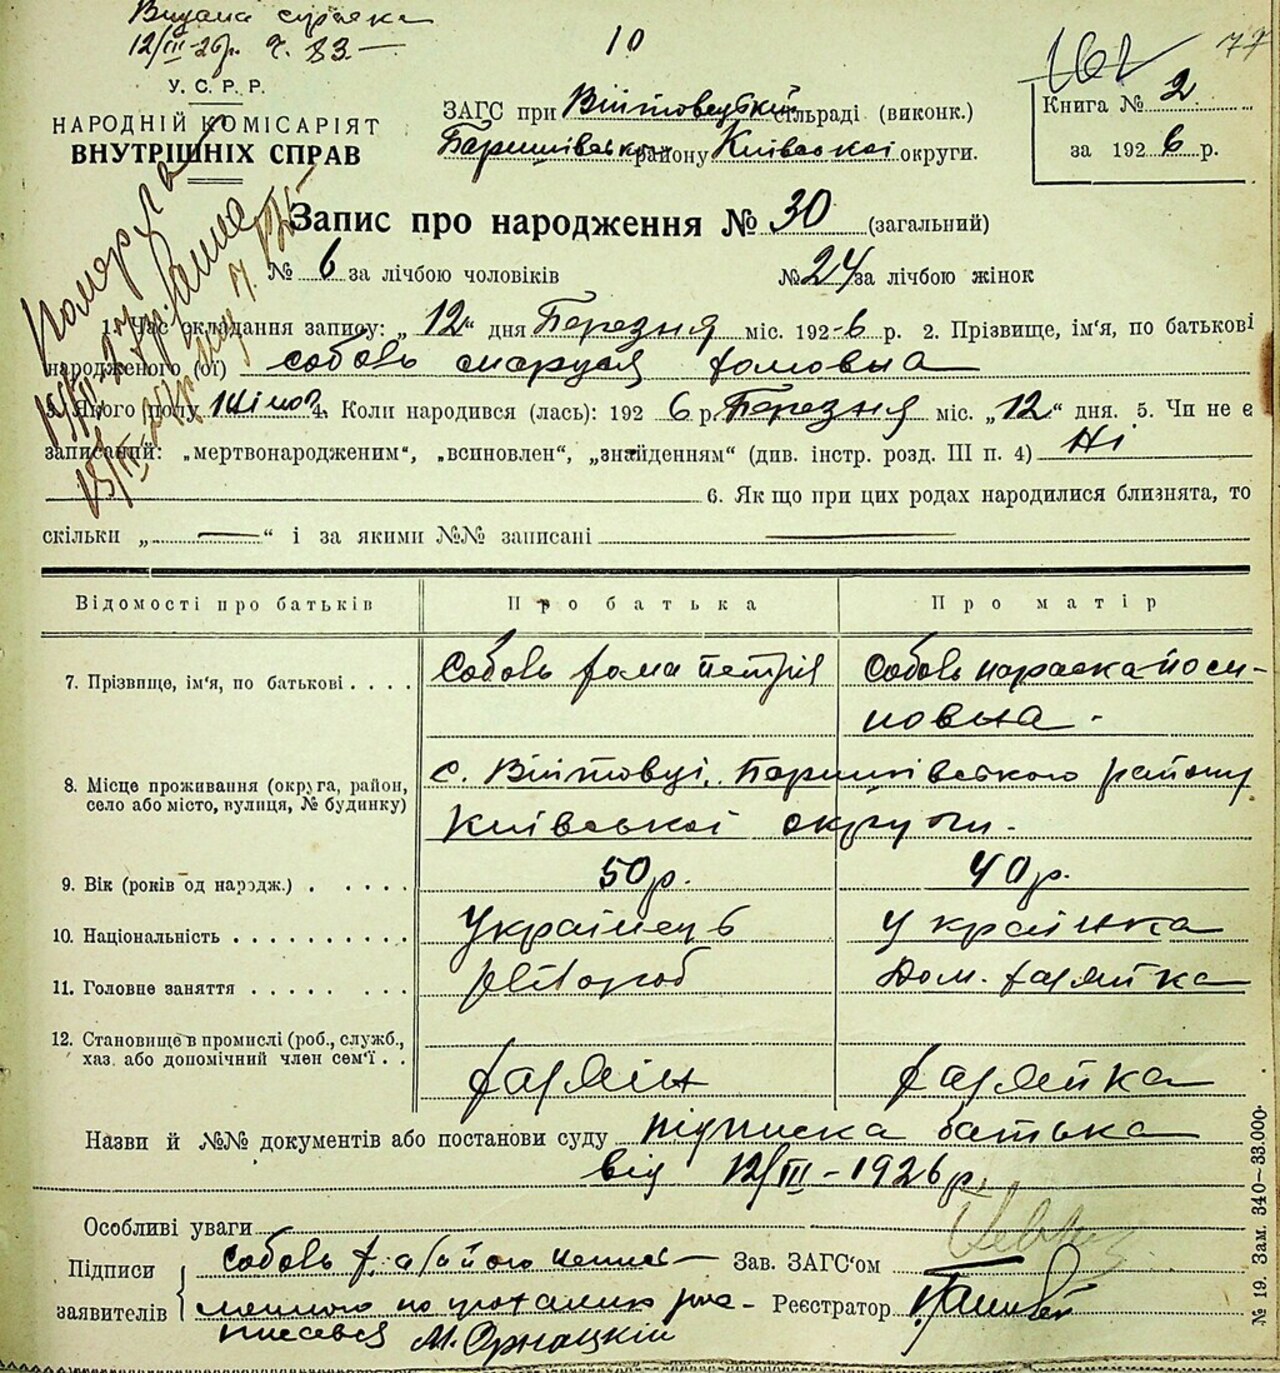 Видана справка
12/III-26р. Ч. 83.—
10
162
77
У. С. Р. Р.
НАРОДНІЙ КОМІСАРІЯТ
ВНУТРІШНІХ СПРАВ
ЗАГС при Війтовецькій сільраді (виконк.)
Баришівськ району Київської округи.
Книга № 2
за 1926 р.
Запис про народження № 30 (загальний)
№ 6 за лічбою чоловіків
№ 24 за лічбою жінок
1. Час складання запису: „12“ дня Березня міс. 192-6 р. 2. Прізвище, ім'я, по батькові
народженого (ої) Собовь Маруся Хомовна
3. Якого полу Жіноч. 4. Коли народився (лась): 192 6 р. Березня міс. „12“ дня. 5. Чи не є
записаний: „мертвонародженим“, „всиновлен“, „знайденням“ (див. інстр. розд. III п. 4) Ні
6. Як що при цих родах народилися близнята, то
скільки „ — “ і за якими №№ записані —
Відомості про батьків
Про батька
Про матір
7. Прізвище, ім'я, по батькові . . . .
Собовь Хома Петрів
Собовь Параска Йоси-
повна -
8. Місце проживання (округа, район,
село або місто, вулиця, № будинку)
с. Війтовці, Баришівського району
Київської округи.
9. Вік (років од народж.) . . . . .
50 р.
40 р.
10. Національність . . . . . . . . . .
Українець
Українка
11. Головне заняття . . . . . . . .
хлібороб
Дом. хазяйка
12. Становище в промислі (роб., служб.,
хаз. або допомічний член сем'ї . .
хазяїн
хазяйка
Назви й №№ документів або постанови суду підписка батька
від 12/III-1926 р.
Особливі уваги
Підписи
заявителів
Собовь Х. а за його непись-
менного по проханню рос-
писався
Зав. ЗАГС'ом
Реєстратор
№ 19. Зам. 340—33.000.